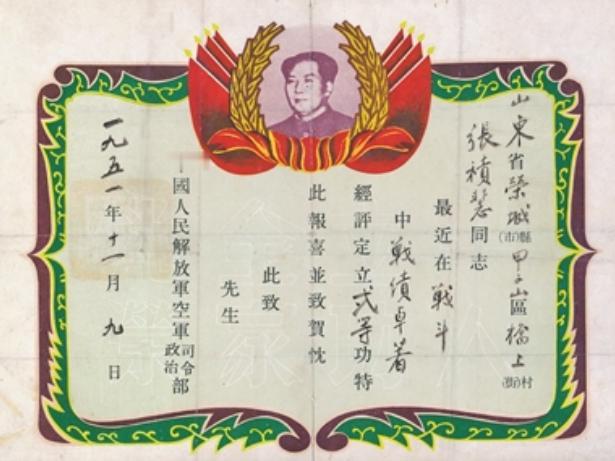 山東省榮城縣(市)甲子山區橋上村(街)
張積慧同志
最近在戰斗
中戰績卓著
經評定立弍等功特
此報喜並致賀忱
此致
先生
國人民解放軍空軍司令部政治
一九五一年十一月九日